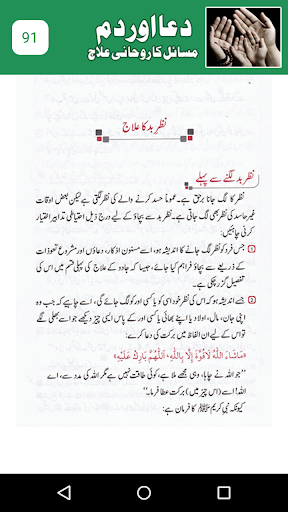 91
دعا اور دم
مسائل کا روحانی علاج
نظرِ بد کا علاج
نظرِ بد لگنے سے پہلے
نظر کا لگ جانا برحق ہے۔ عموماً حسد کرنے والے کی نظر لگتی ہے لیکن بعض اوقات
غیر حاسد کی نظر بھی لگ جاتی ہے۔ نظرِ بد سے بچاؤ کے لیے درج ذیل احتیاطی تدابیر اختیار
کرنی چاہئیں:
1 جس فرد کو نظر لگ جانے کا اندیشہ ہو، اسے مسنون اذکار، دعاؤں اور مشروع تعوذات
کے ذریعے سے بچاؤ فراہم کیا جائے، جیسا کہ جادو کے علاج کی پہلی قسم میں اس کی
تفصیل گزر چکی ہے۔
2 جسے اندیشہ ہو کہ اس کی نظر خود اسی کو یا کسی اور کو لگ جائے گی، اسے چاہیے کہ جب وہ
اپنی جان، مال، اولاد یا اپنے بھائی یا کسی اور کے پاس ایسی چیز دیکھے جو اسے بھلی لگے
تو اس کے لیے ان الفاظ میں برکت کی دعا کرے:
«مَاشَاءَ اللّٰهُ لَا قُوَّةَ اِلَّا بِاللّٰهِ، اَللّٰهُمَّ بَارِكْ عَلَيْهِ»
’’جو اللہ نے چاہا، وہی مجھے ملا ہے، کوئی طاقت نہیں ہے مگر اللہ کی مدد سے، اے
اللہ! اسے (اس چیز میں) برکت عطا فرما۔‘‘
کیونکہ نبی کریم ﷺ کا فرمان ہے: